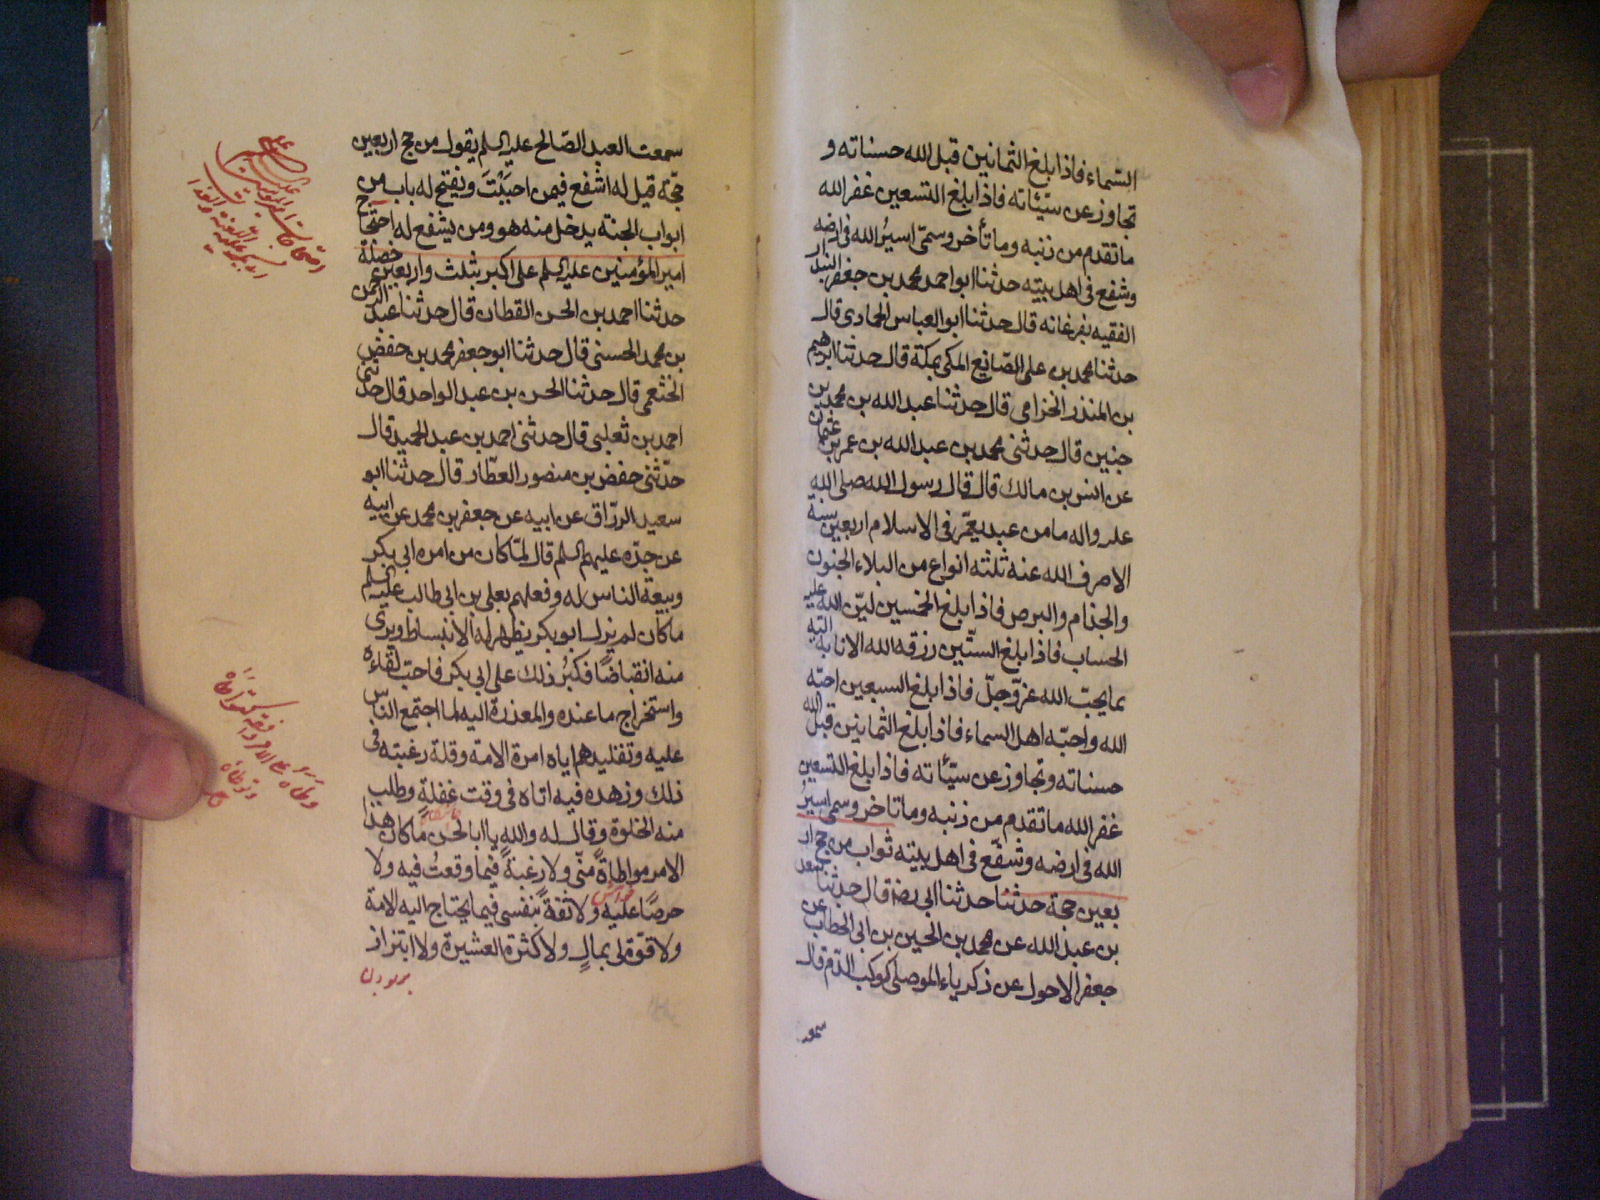 السّماء فاذا بلغ الثمانين قبل الله حسناته و
تجاوز عن سيّئاته فاذا بلغ التسعين غفر الله
ما تقدم من ذنبه وما تأخر وسمّى اسيرُ الله فى ارضه
وشفع فى اهل بيته حدثنا ابو احمد محمد بن جعفر البندار
الفقيه بفرغانه قال حدثنا ابو العباس الحمادى قال
حدثنا محمد بن على الصّائغ المكى بمكة قال حدثنا ابرهيم
بن المنذر الحزامى قال حدثنا عبد الله بن محمد بن
جنين قال حدثنى محمد بن عبد الله بن عمر بن عثمن
عن انس بن مالك قال قال رسول الله صلى الله
عليه واله ما من عبد يعمّر فى الاسلام اربعين سنة
الا صرف الله عنه ثلثه انواع من البلاء الجنون
والجذام والبرص فاذا بلغ الخمسين ليّن الله عليه
الحساب فاذا بلغ السّتّين رزقه الله الانابة اليه
بما يحبّ الله عزّ وجلّ فاذا بلغ السبعين احبّه
الله واحبّه اهل السماء فاذا بلغ الثمانين قبل الله
حسناته وتجاوز عن سيّئاته فاذا بلغ التسعين
غفر الله ما تقدم من ذنبه وما تأخر وسمى اسيرُ
الله فى ارضه وشفّع فى اهل بيته ثواب من حج ار
بعين حجة حدثنا حدثنا ابى رضه قال حدثنا سعد
بن عبد الله عن محمد بن الحسين بن ابى الخطاب عن
جعفر الاحول عن زكرياء الموصلى كوكب الدّم قال
سمعت
سمعت العبد الصّالح عليه السلم يقول من حج اربعين
حجّة قيل له اشفع فيمن احبَبْتَ ويفتح له باب من
ابواب الجنة يدخل منه هو ومن يشفع له احتجاج
امير المؤمنين عليه السلم على ابى بكر بثلث واربعين خصلة
حدثنا احمد بن الحسن القطان قال حدثنا عبد الرحمن
بن محمد الحسنى قال حدثنا ابو جعفر محمد بن حفص
الخثعمى قال حدثنا الحسن بن عبد الواحد قال حدثنى
احمد بن ثعلبى قال حدثنى احمد بن عبد الحميد قال
حدّثنى حفص بن منصور العطّار قال حدثنا ابو
سعيد الورّاق عن ابيه عن جعفر بن محمد عن ابيه
عن جدّه عليهم السلم قال لمّا كان من امر ابى بكر
وبيعة الناس له وفعلهم بعلى بن ابى طالب عليه السلم
ما كان لم يزل ابو بكر يظهر له الانبساط ويرى
منه انقباضًا فكبُر ذلك على ابى بكر فاحب لقاءه
واستخراج ما عنده والمعذرة اليه لما اجتمع الناس
عليه وتقليدهم اياه امرة الامّة وقلة رغبته فى
ذلك وزهده فيه اتاه فى وقت غفلةٍ وطلب
منه الخلوة وقال له والله يا ابا الحسن ما كان هذا
الامر مواطاةً منّى ولا رغبةً فيما وقعتُ فيه ولا
حرصًا عليه ولا ثقةً بنفسى فيما يحتاج اليه الامة
ولا قوّة لى بمالٍ ولا كثرة العشيرة ولا ابتزاز